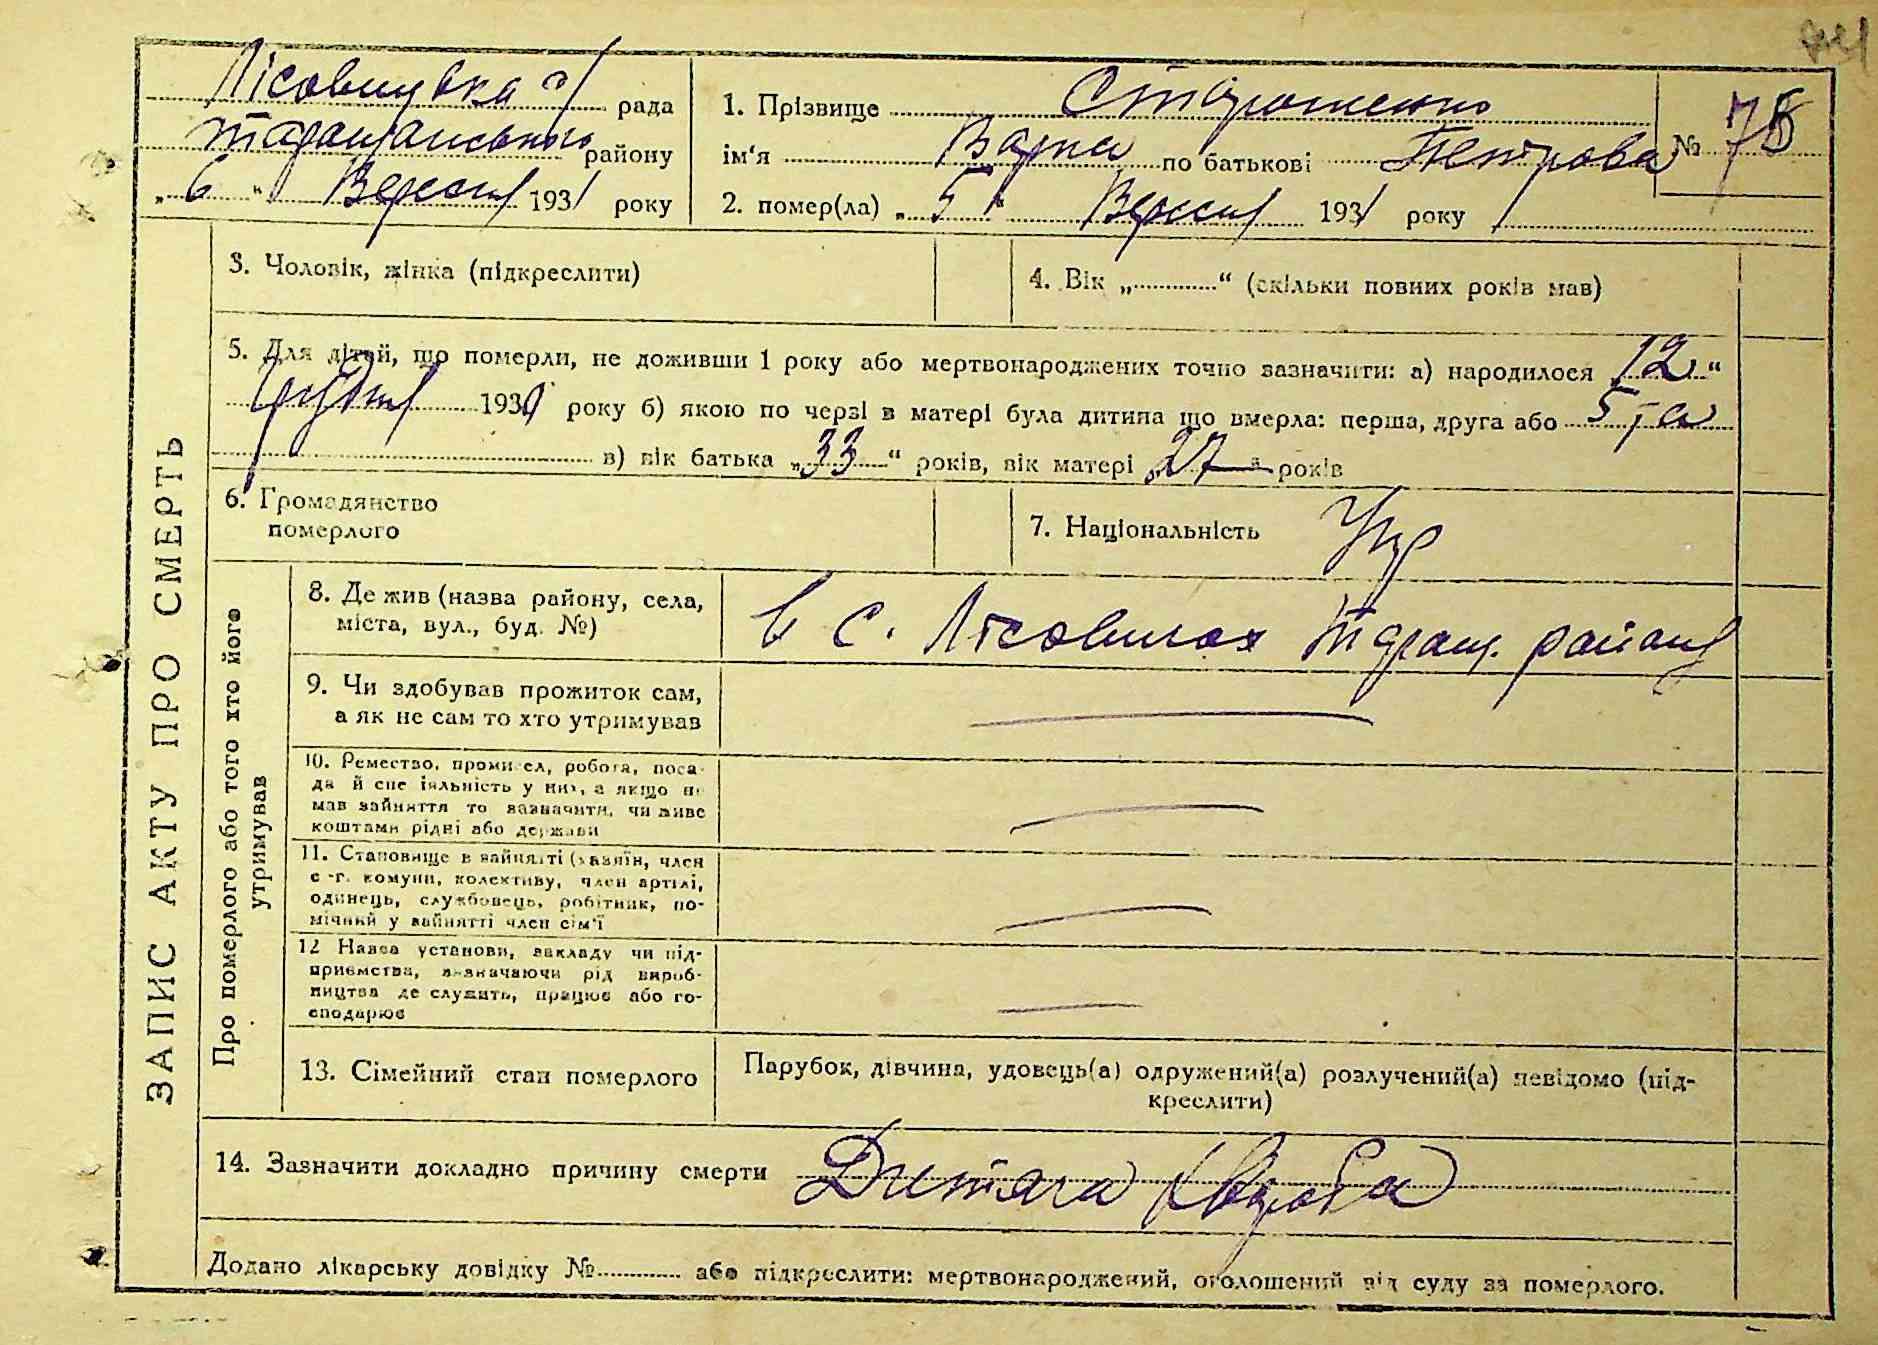 Лісовицька с/рада
Таращанського району
„6“ Вересня 1931 року
1. Прізвище Стороженко
ім‘я Варка по батькові Петрова
№ 75
2. помер(ла) „5“ Вересня 1931 року
3. Чоловік, жінка (підкреслити)
4. Вік „............“ (скільки повних років мав)
5. Для дітей, що померли, не доживши 1 року або мертвонароджених точно зазначити: а) народилося „12“
Грудня 1930 року б) якою по черзі в матері була дитина що вмерла: перша, друга або 5 та
в) вік батька „33“ років, вік матері „27“ років
6. Громадянство
померлого
7. Національність Укр
ЗАПИС АКТУ ПРО СМЕРТЬ
Про померлого або того хто його
утримував
8. Де жив (назва району, села,
міста, вул., буд. №)
в с. Лісовичах Таращ. району
9. Чи здобував прожиток сам,
а як не сам то хто утримував
10. Ремество, промисел, робота, поса-
да й спеціяльність у них, а якщо не
мав зайняття то зазначити, чи живе
коштами рідні або держави
11. Становище в зайнятті (хазяїн, член
с-г. комуни, колективу, член артілі,
одинець, службовець, робітник, по-
мічний у зайнятті член сім'ї
12 Назва установи, закладу чи під-
приємства, визначаючи рід вироб-
ництва де служить, працює або го-
сподарює
13. Сімейний стан померлого
Парубок, дівчина, удовець(а) одружений(а) розлучений(а) невідомо (під-
креслити)
14. Зазначити докладно причину смерти Дитяча хвороба
Додано лікарську довідку №............ або підкреслити: мертвонароджений, оголошений від суду за померлого.